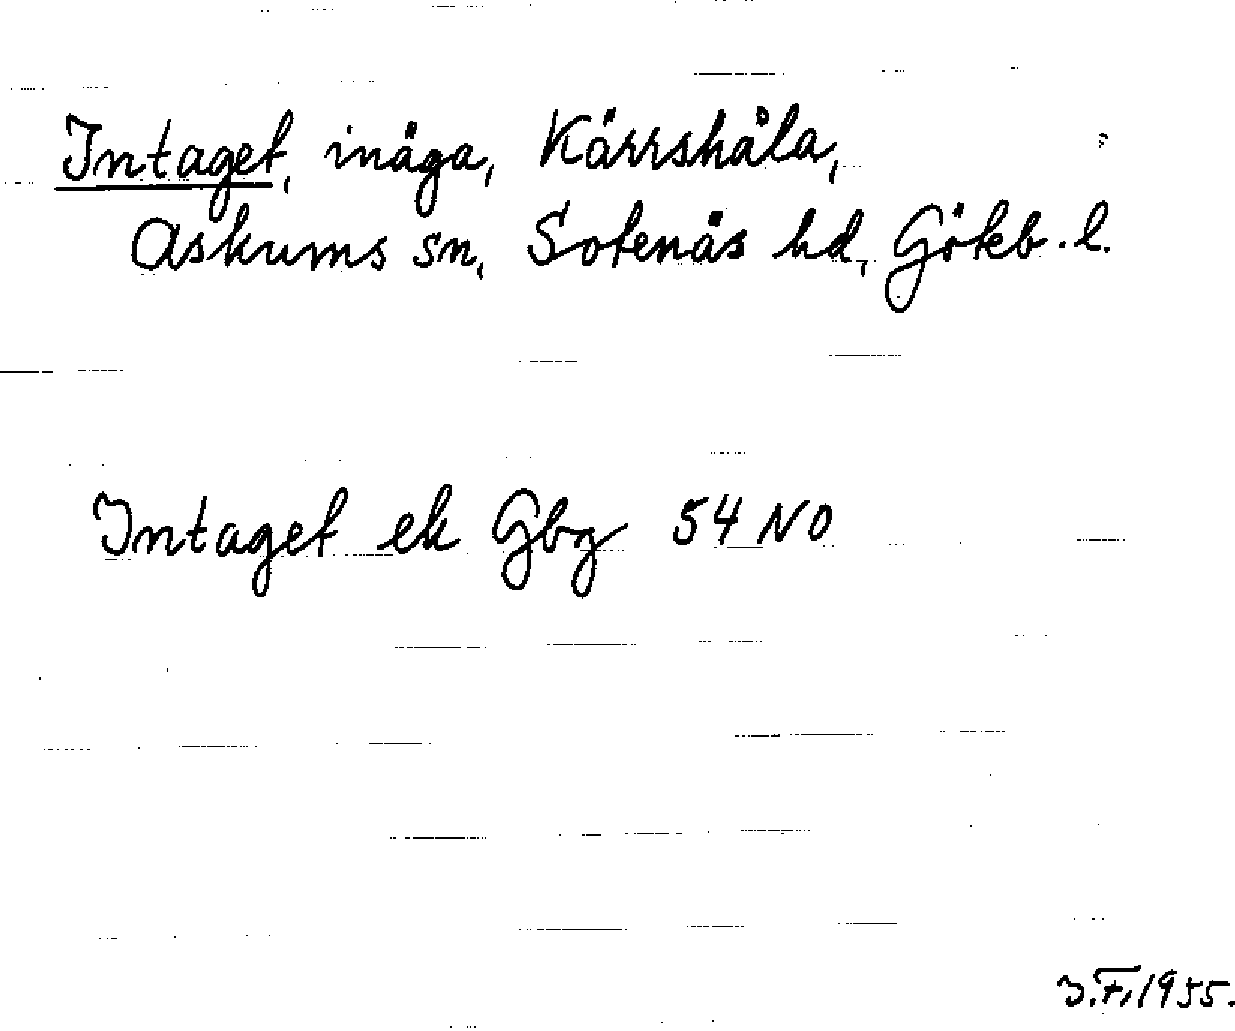 Intaget, inäga, Kärrshåla,
Askums sn, Sotenäs hd, Göteb. l.
Intaget ek Gbg 54 NO
J.F. 1955.